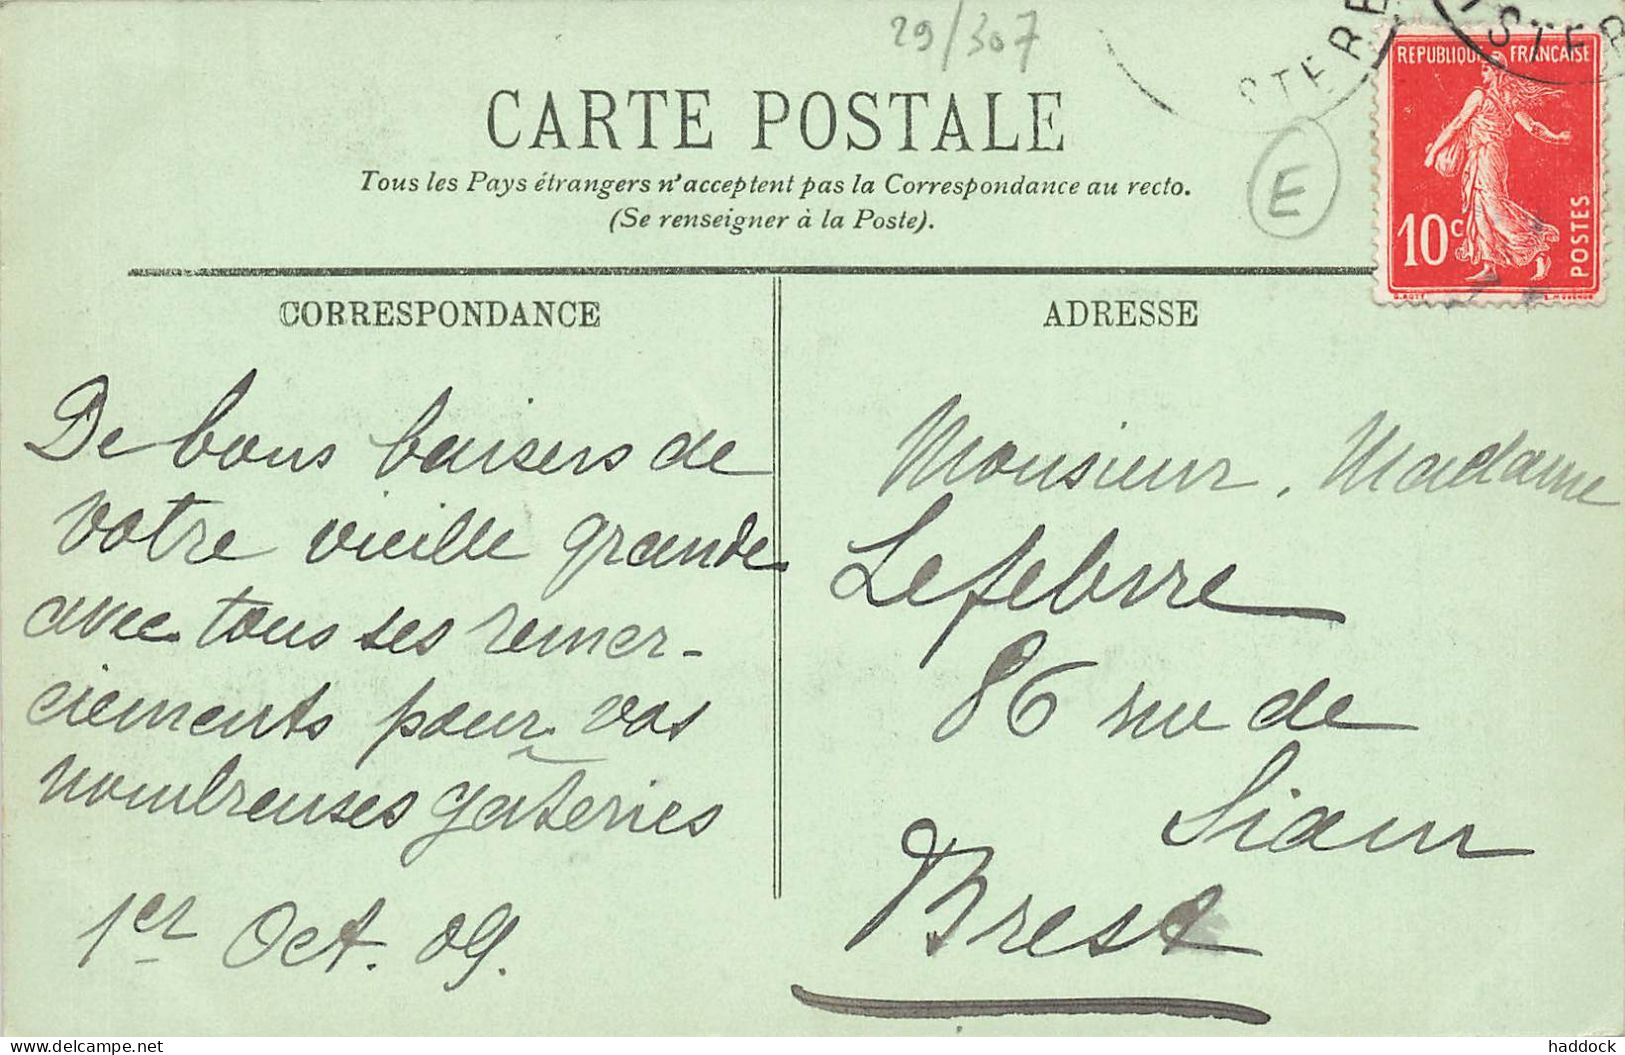 29/307
STERE
STER
CARTE POSTALE
Tous les Pays étrangers n'acceptent pas la Correspondance au recto.
(Se renseigner à la Poste).
E
REPUBLIQUE FRANCAISE
10c
POSTES
CORRESPONDANCE
De bons baisers de
votre vieille grande
avec tous ses remer-
ciements pour vos
nombreuses gâteries
1er Oct. 09.
ADRESSE
Monsieur, Madame
Lefebvre
86 rue de
Siam
Brest
haddock